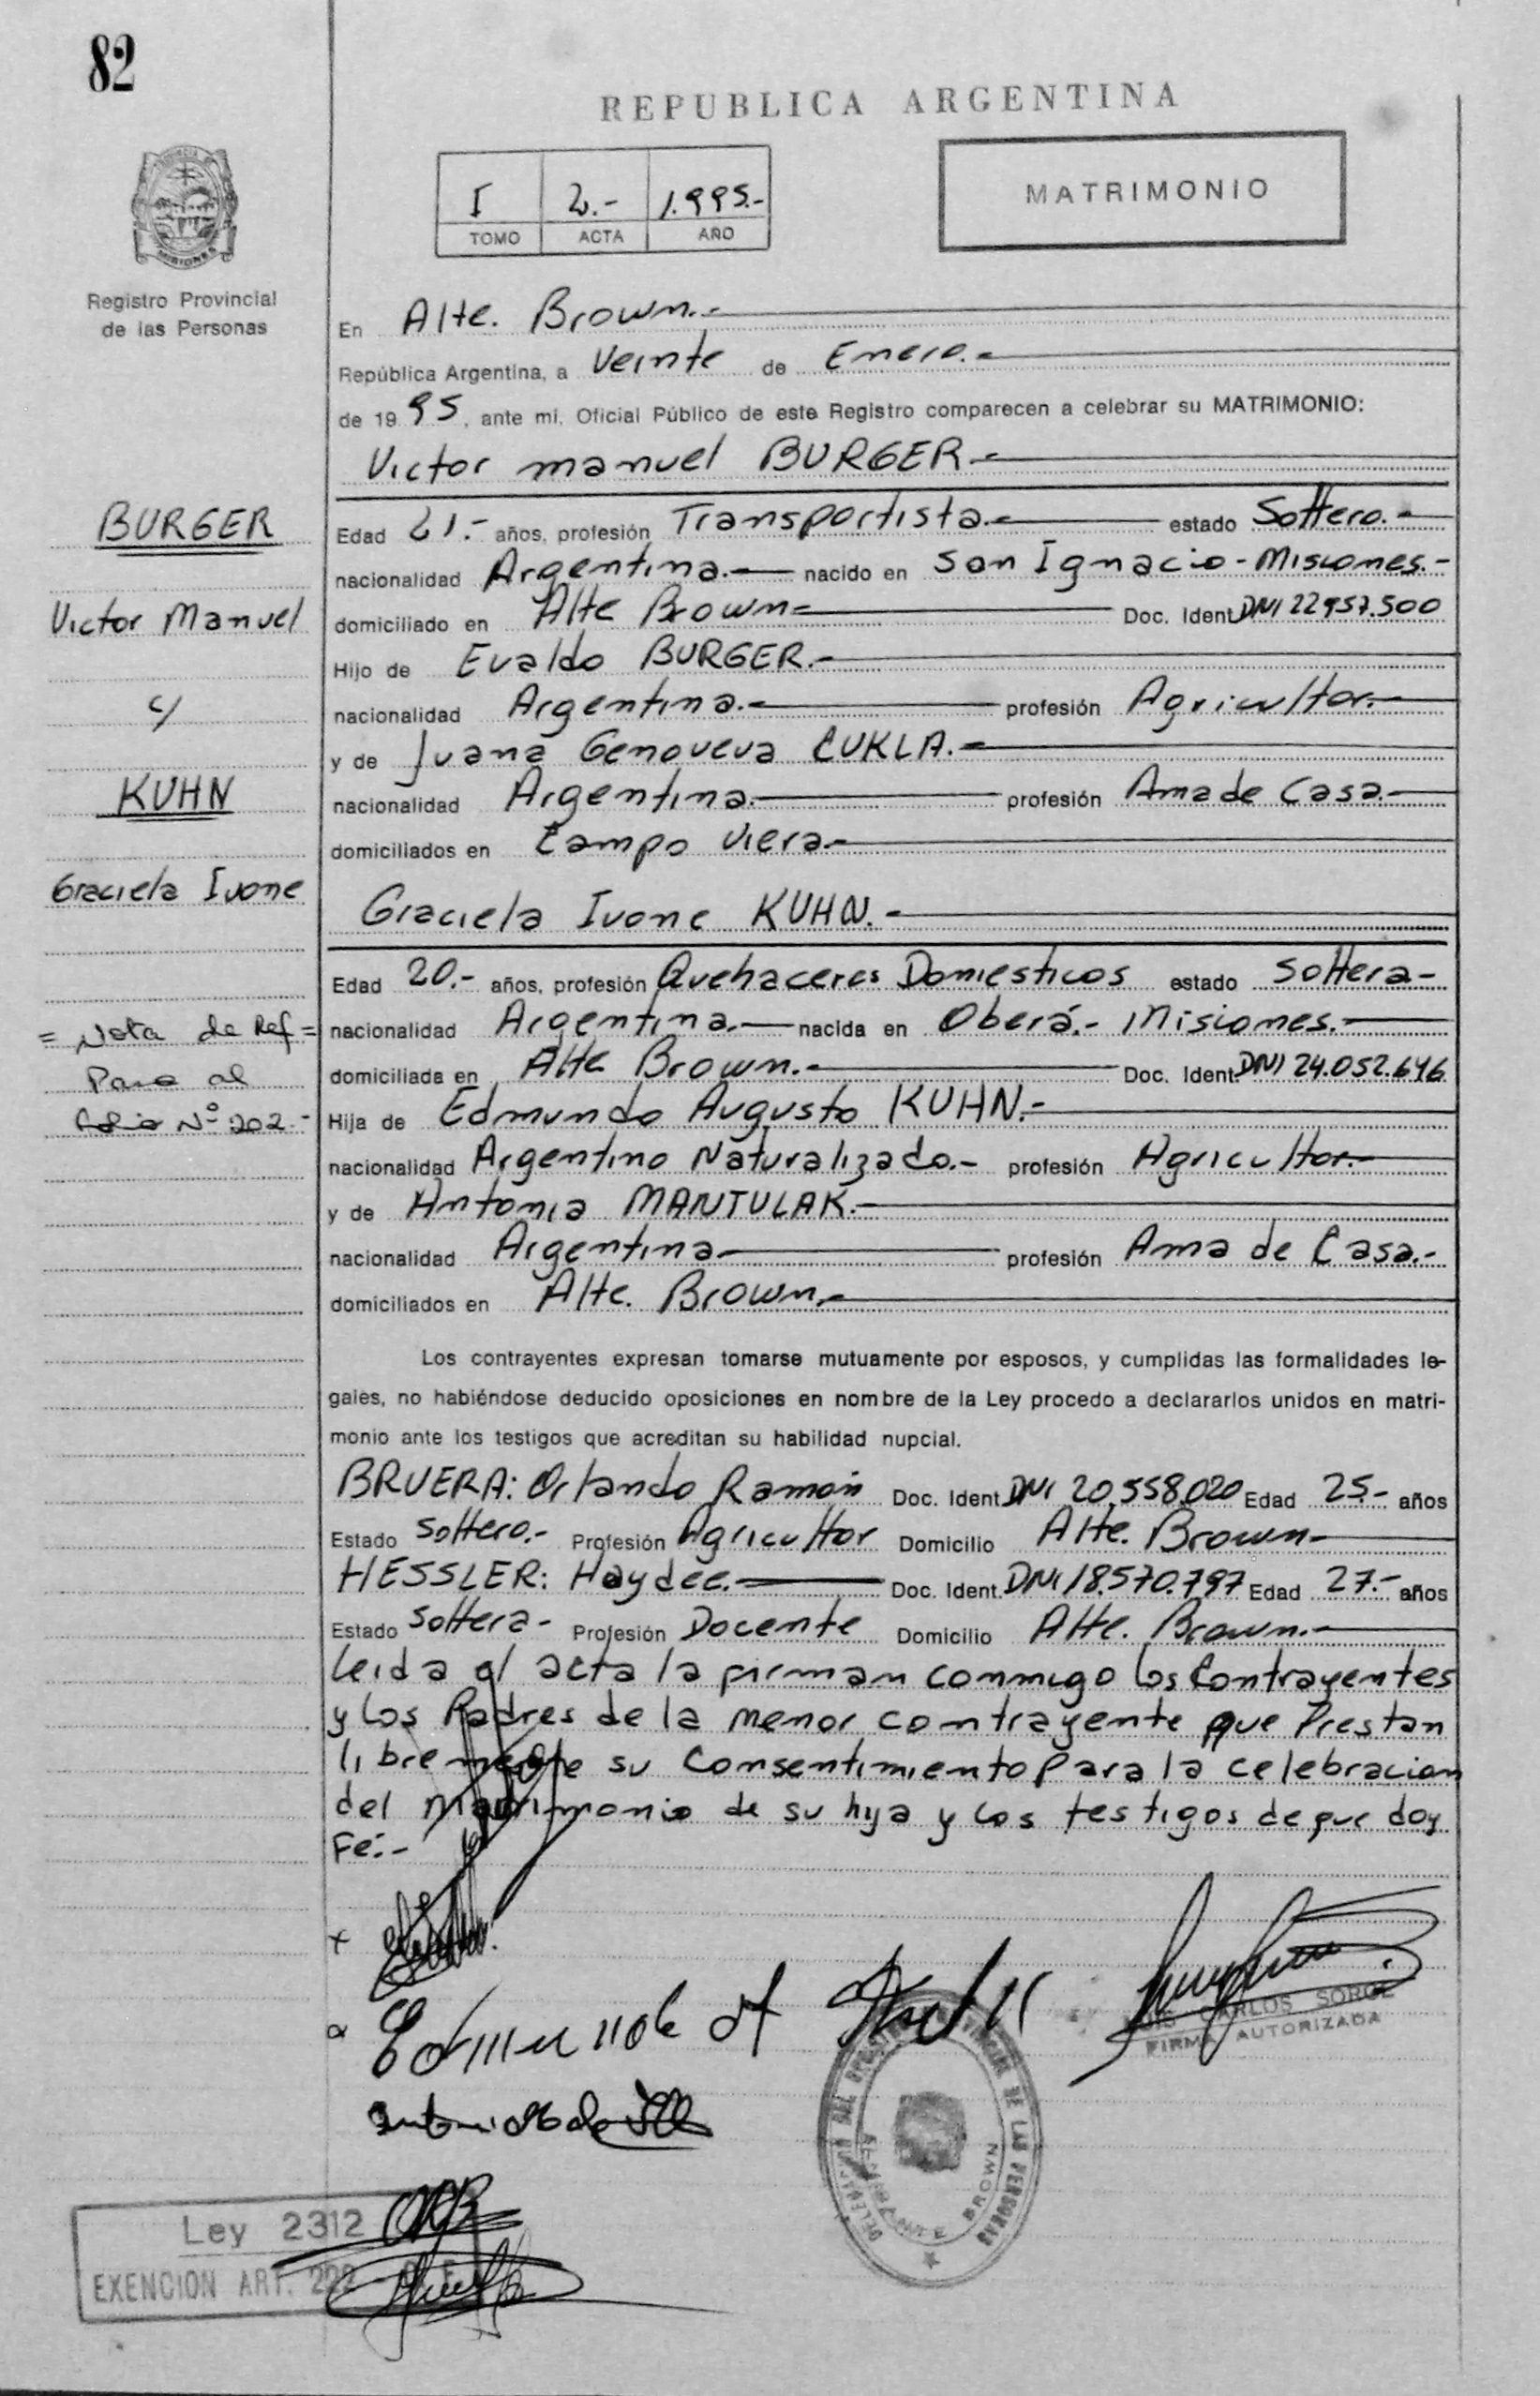 82
REPUBLICA ARGENTINA
I 2.- 1.995.-
TOMO ACTA AÑO
MATRIMONIO
PROVINCIA DE
MISIONES
Registro Provincial
de las Personas
En Alte. Brown.-
República Argentina, a Veinte de Enero.-
de 19 95, ante mi, Oficial Público de este Registro comparecen a celebrar su MATRIMONIO:
Victor manuel BURGER.-
BURGER
Victor Manuel
c/
KUHN
Graciela Ivone
= Nota de Ref =
Pasa al
folio Nº 202.-
Edad 21.- años, profesión Transportista.- estado Soltero.-
nacionalidad Argentina.- nacido en San Ignacio - Misiones.-
domiciliado en Alte Brown- Doc. Ident. DNI 22957.500
Hijo de Evaldo BURGER.-
nacionalidad Argentina.- profesión Agricultor.-
y de Juana Genoveva CUKLA.-
nacionalidad Argentina.- profesión Ama de Casa.-
domiciliados en Campo Viera.-
Graciela Ivone KUHN.-
Edad 20.- años, profesión Quehaceres Domesticos estado Soltera-
nacionalidad Argentina.- nacida en Oberá.- Misiones.-
domiciliada en Alte Brown.- Doc. Ident. DNI 24.052.646
Hija de Edmundo Augusto KUHN.-
nacionalidad Argentino Naturalizado.- profesión Agricultor.-
y de Antonia MANTULAK.-
nacionalidad Argentina- profesión Ama de Casa.-
domiciliados en Alte. Brown.-
Los contrayentes expresan tomarse mutuamente por esposos, y cumplidas las formalidades le-
gales, no habiéndose deducido oposiciones en nombre de la Ley procedo a declararlos unidos en matri-
monio ante los testigos que acreditan su habilidad nupcial.
BRUERA: Orlando Ramón Doc. Ident. DNI 20.558.020 Edad 25.- años
Estado Soltero.- Profesión Agricultor Domicilio Alte. Brown-
HESSLER: Haydee.- Doc. Ident. DNI 18.570.797 Edad 27.- años
Estado Soltera- Profesión Docente Domicilio Alte. Brown.-
Leida el acta la firman conmigo los Contrayentes
y los Padres de la menor contrayente que Prestan
libremente su Consentimiento Para la celebracion
del Matrimonio de su hija y los testigos de que doy
Fé.-
Edmundo A
CARLOS SORGE
FIRMA AUTORIZADA
DELEGACION DEL REGISTRO PROVINCIAL DE LAS PERSONAS
ALMIRANTE BROWN
Ley 2312
EXENCION ART. 222